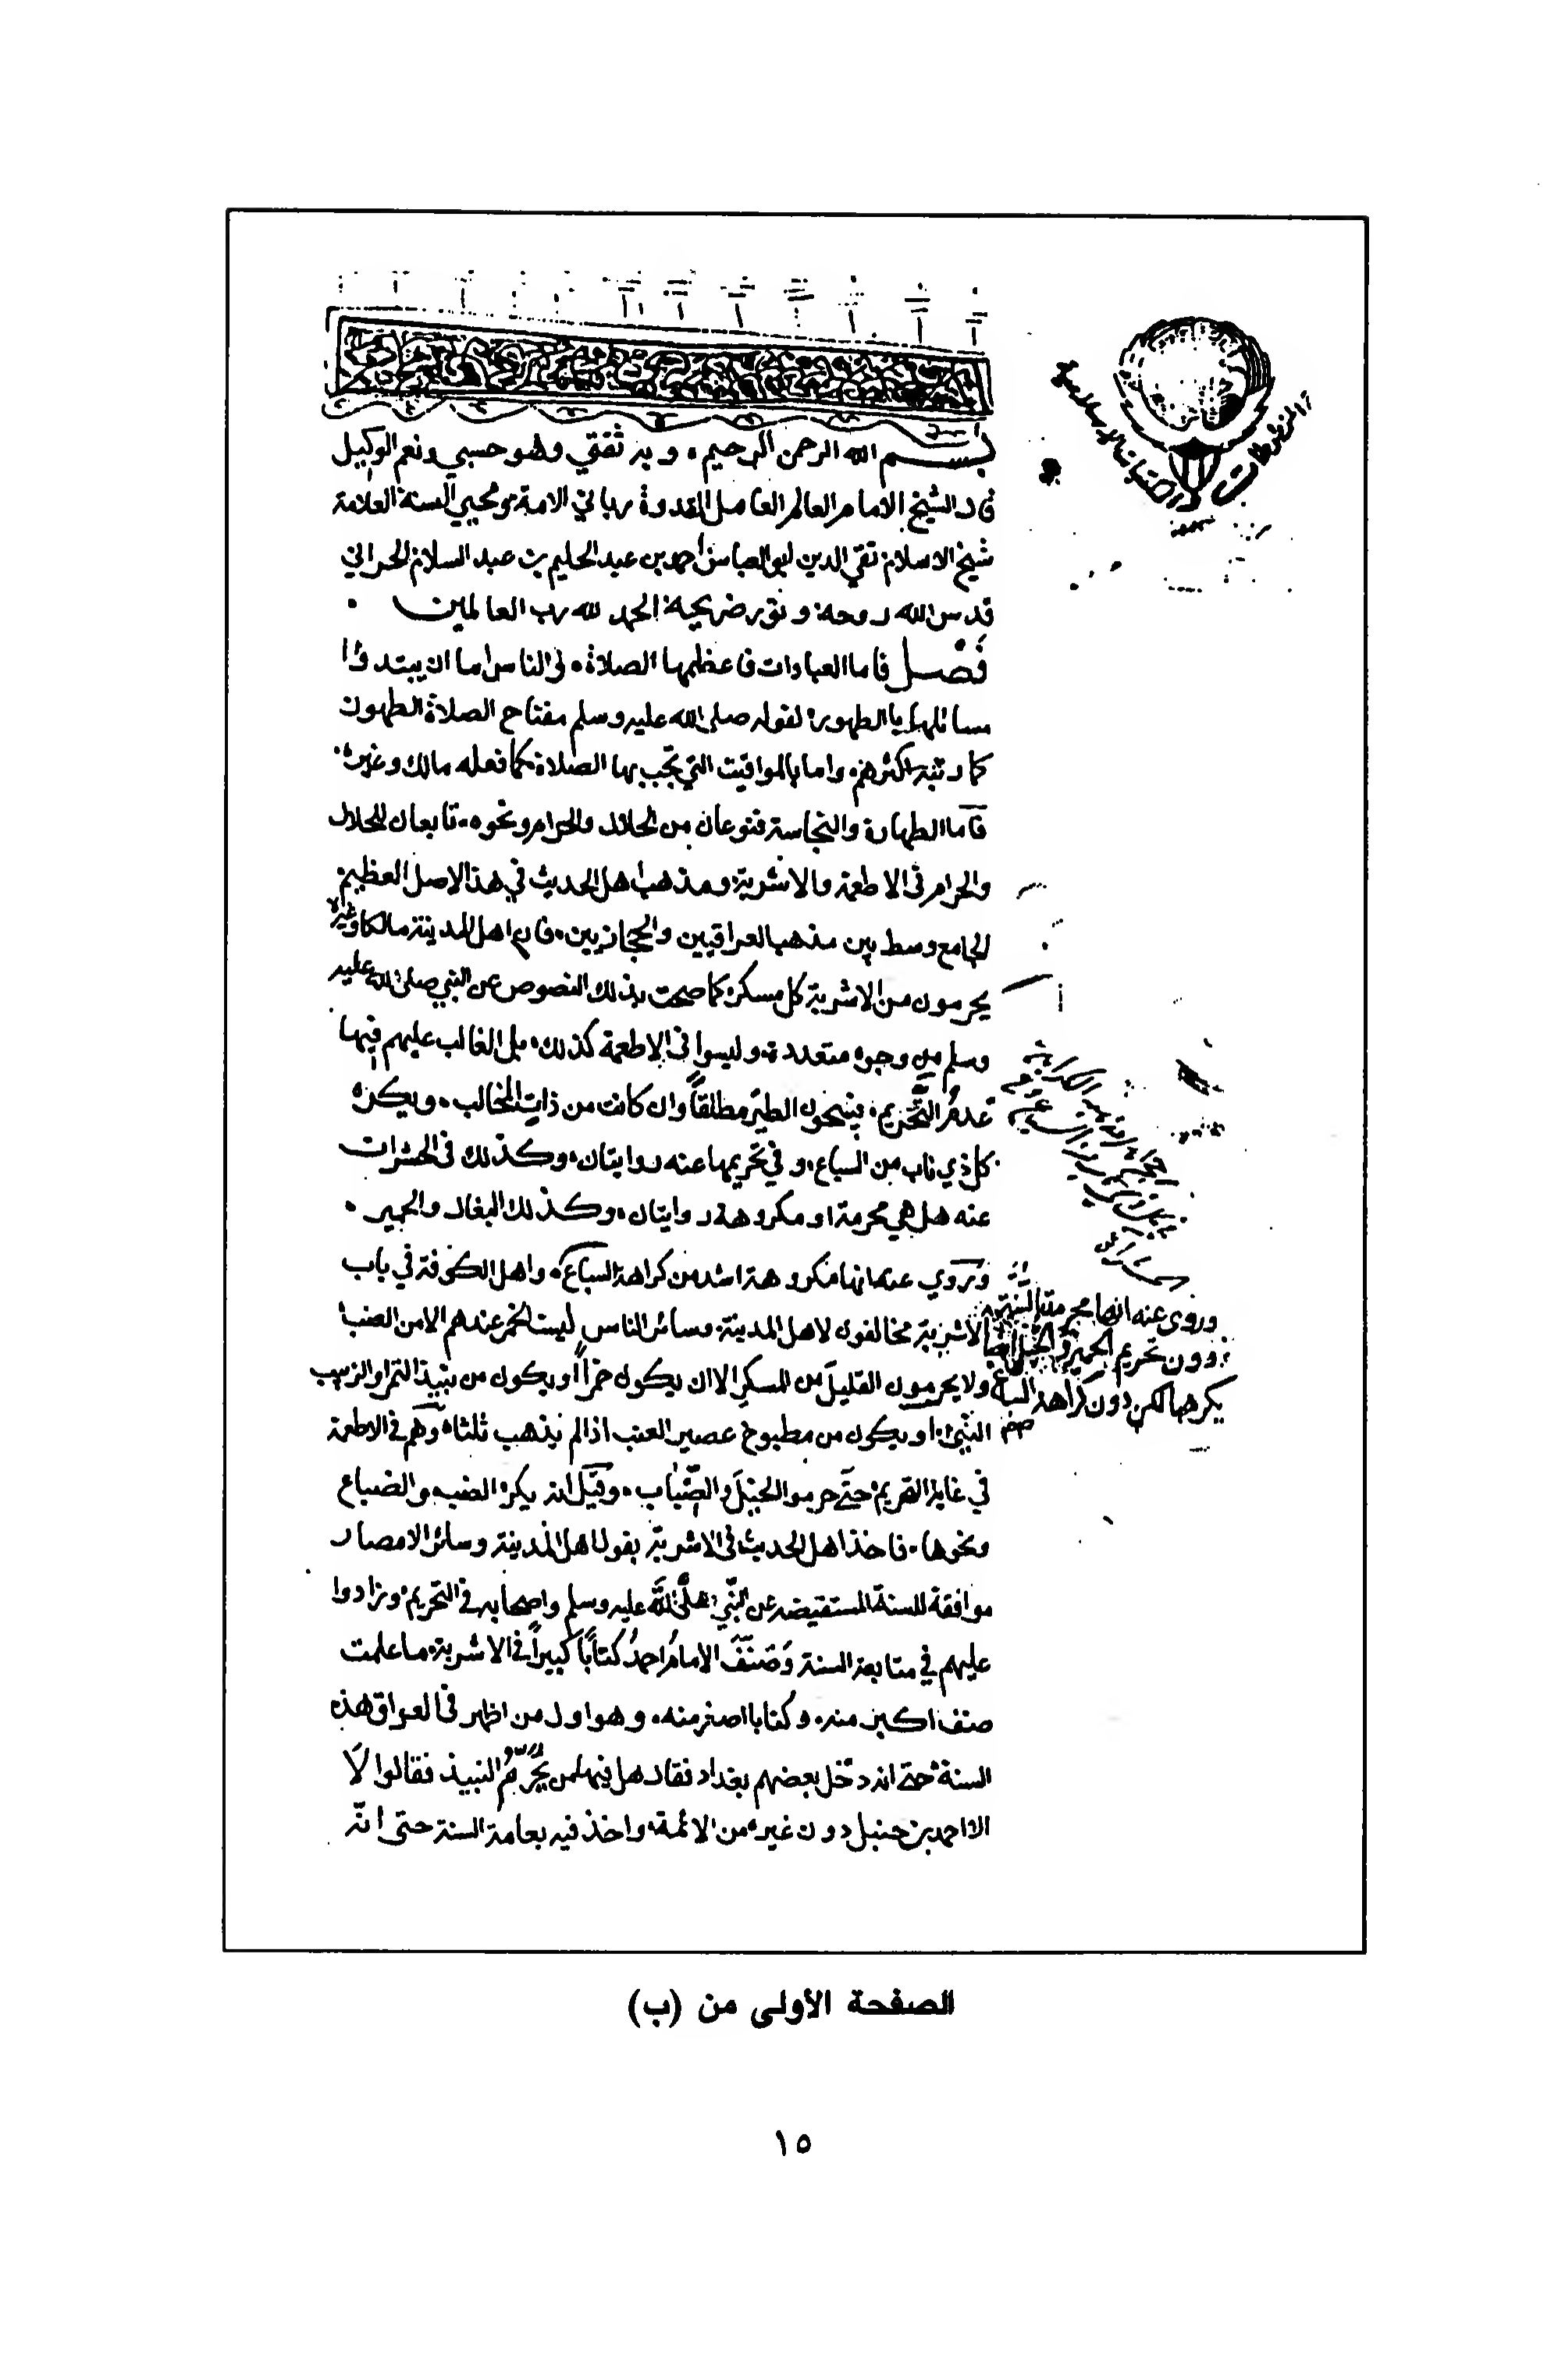 بسم الله الرحمن الرحيم، وبه ثقتي وهو حسبي ونعم الوكيل
قال الشيخ الامام العالم العامل القدوة رباني الامة ومحيي السنة العلامة
شيخ الاسلام تقي الدين ابو العباس احمد بن عبد الحليم بن عبد السلام الحراني
قدس الله روحه ونور ضريحه الحمد لله رب العالمين
فَصْل فاما العبادات فاعظمها الصلاة، والناس اما ان يبتدؤا
مسائلها بالطهور لقوله صلى الله عليه وسلم مفتاح الصلاة الطهور
كما رتبه اكثرهم، واما بالمواقيت التي تجب بها الصلاة كما فعله مالك وغيره
فاما الطهارة والنجاسة فنوعان من الحلال والحرام ونحوه، تابعان للحلال
والحرام في الاطعمة والاشربة ومذهب اهل الحديث في هذا الاصل العظيم
الجامع وسط بين مذهب العراقيين والحجازيين، فان اهل المدينة مالكا وغيره
يحرمون من الاشربة كل مسكر كما صحت بذلك النصوص عن النبي صلى الله عليه
وسلم من وجوه متعددة، وليسوا في الاطعمة كذلك، بل الغالب عليهم فيها
عدم التحريم، يبيحون الطير مطلقاً وان كانت من ذات المخالب، ويكره
كل ذي ناب من السباع، وفي تحريمها عنه روايتان، وكذلك في الحشرات
عنه هل هي محرمة او مكروهة روايتان، وكذلك البغال والحمير،
وروي عنه انها مكروهة اشد من كراهة السباع، واهل الكوفة في باب
وروى عنه انها محرمة بالسنة
الاشربة مخالفون لاهل المدينة، وسائر الناس ليست الخمر عندهم الا من العنب
دون تحريم الحمير والخيل ايضا
ولا يحرمون القليل من المسكر الا ان يكون خمراً او يكون من نبيذ التمر او الزبيب
يكرهها لكن دون كراهة السباع
صح
النيء، او يكون من مطبوخ عصير العنب اذا لم يذهب ثلثاه وهم في الاطعمة
في غاية التحريم حتى حرموا الخيل والضِّباب، وقيل انه يكره الضب والضباع
ونحوها، فاخذ اهل الحديث في الاشربة بقول اهل المدينة وسائر الامصار
موافقة للسنة المستفيضة عن النبي صلى الله عليه وسلم واصحابه في التحريم، وزادوا
عليهم في متابعة السنة وَصَنَّفَ الامامُ احمدُ كتاباً كبيراً في الاشربة، ما علمت
صنف اكبر منه، وكتابا اصغر منه، وهو اول من اظهر في العراق هذه
السنة حتى انه دخل بعضهم بغداد فقال هل فيها من يُحَرِّمُ النبيذ فقالوا لَا
الا احمد بن حنبل دون غيره من الائمة، واخذ فيه بعامة السنة حتى انَّه
الصفحة الأولى من (ب)
١٥